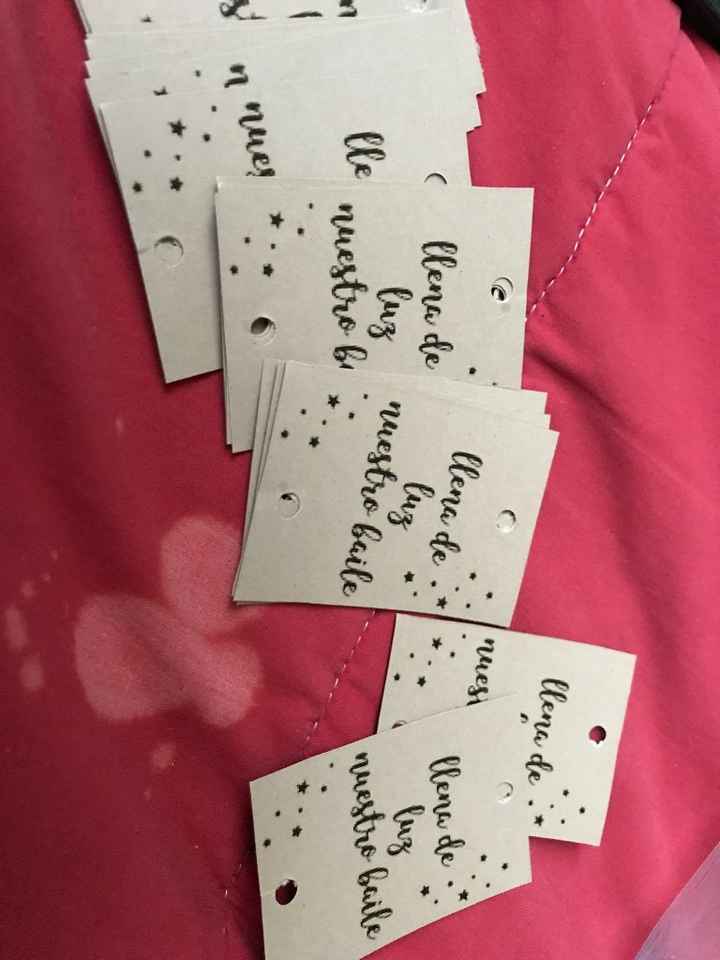 n nues
lle
llena de
luz
nuestro ba
llena de
luz
nuestro baile
llena de
nuest
llena de
luz
nuestro baile